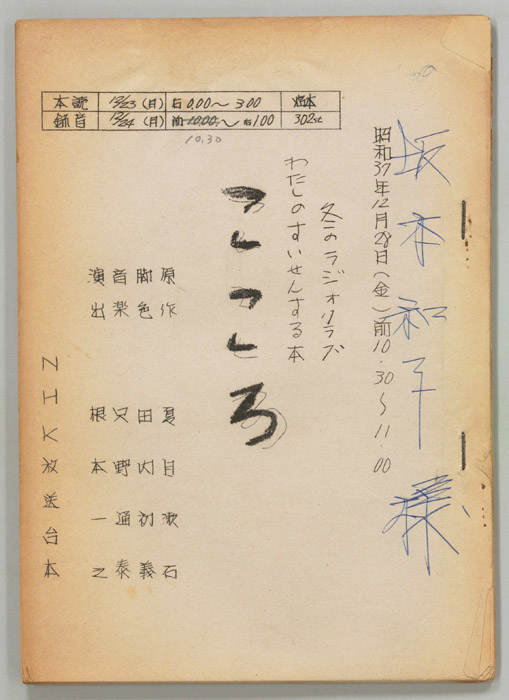 本読 12/23(月) 后0.00〜3.00 焔本
録音 12/24(月) 10.00〜后1.00 302st
10.30
坂本和子様
昭和37年12月28日(金)前10.30〜11.00
冬のラジオクラブ
わたしのすいせんする本
こころ
原作 夏目漱石
脚色 田内初義
音楽 又野通泰
演出 根本一之
NHK放送台本